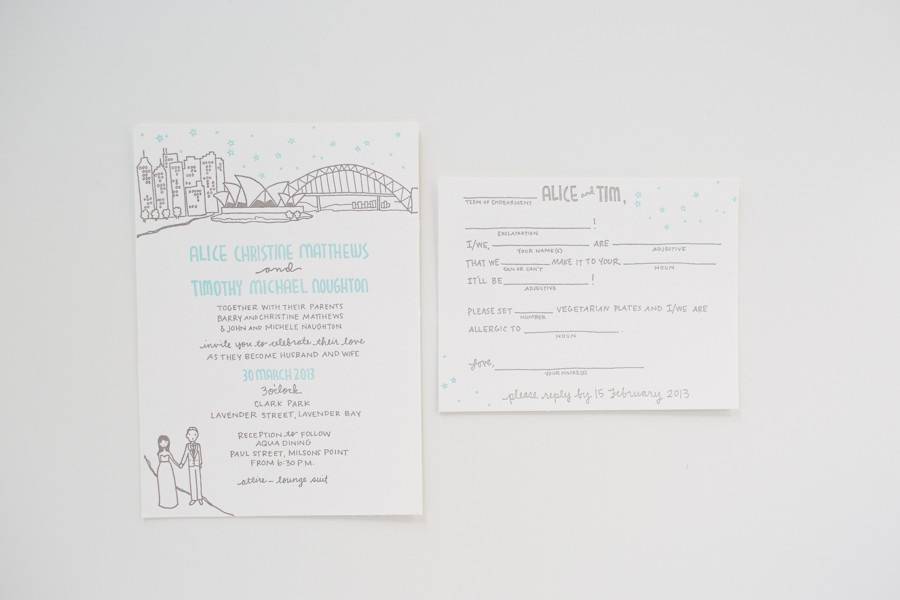 ALICE CHRISTINE MATTHEWS
and
TIMOTHY MICHAEL NOUGHTON
TOGETHER WITH THEIR PARENTS
BARRY AND CHRISTINE MATTHEWS
& JOHN AND MICHELE NAUGHTON
invite you to celebrate their love
AS THEY BECOME HUSBAND AND WIFE
30 MARCH 2013
3 o'clock
CLARK PARK
LAVENDER STREET, LAVENDER BAY
RECEPTION to FOLLOW
AQUA DINING
PAUL STREET, MILSONS POINT
FROM 6:30 P.M.
attire – lounge suit
ALICE and TIM,
TERM OF ENDEARMENT
!
EXCLAMATION
I/WE, ARE
YOUR NAME(S) ADJECTIVE
THAT WE MAKE IT TO YOUR
CAN OR CAN'T NOUN
IT'LL BE !
ADJECTIVE
PLEASE SET VEGETARIAN PLATES AND I/WE ARE
NUMBER
ALLERGIC TO .
NOUN
love,
YOUR NAME(S)
please reply by 15 February 2013